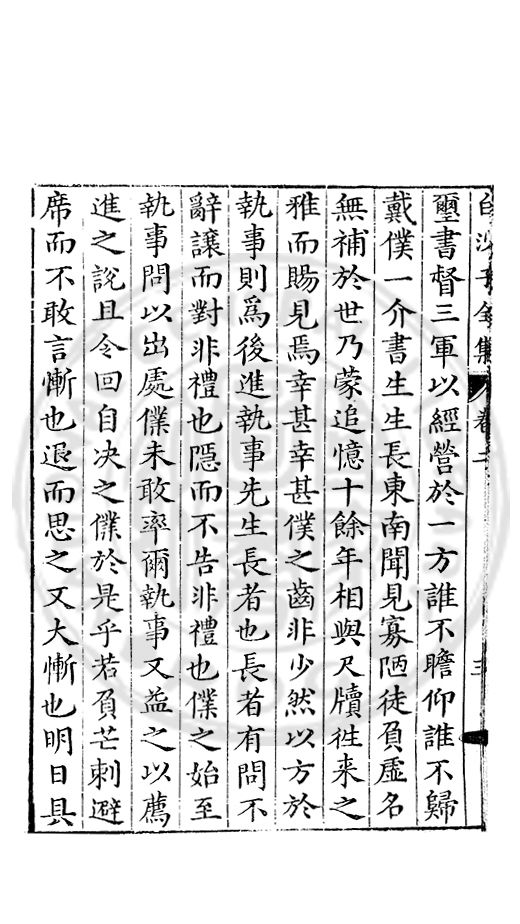 白沙子全集 卷二 三
璽書督三軍以經營於一方誰不瞻仰誰不歸
戴僕一介書生生長東南聞見寡陋徒負虛名
無補於世乃蒙追憶十餘年相與尺牘徃来之
雅而賜見焉幸甚幸甚僕之齒非少然以方於
執事則爲後進執事先生長者也長者有問不
辭讓而對非禮也隱而不告非禮也僕之始至
執事問以出處僕未敢率爾執事又益之以薦
進之說且令回自决之僕於是乎若負芒刺避
席而不敢言慚也退而思之又大慚也明日具